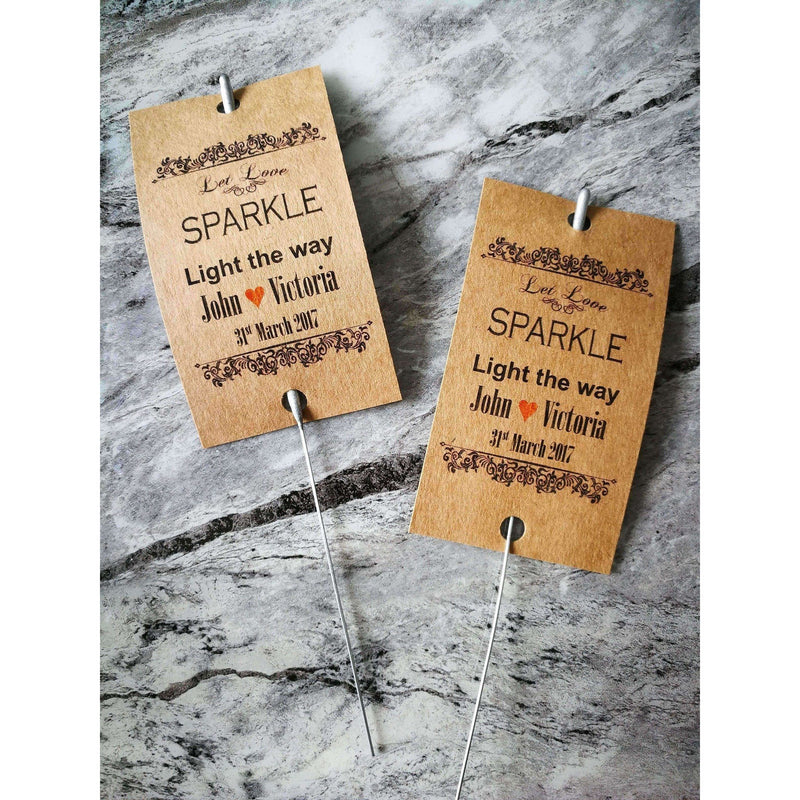 Let Love
SPARKLE
Light the way
John ♥ Victoria
31st March 2017
Let Love
SPARKLE
Light the way
John ♥ Victoria
31st March 2017